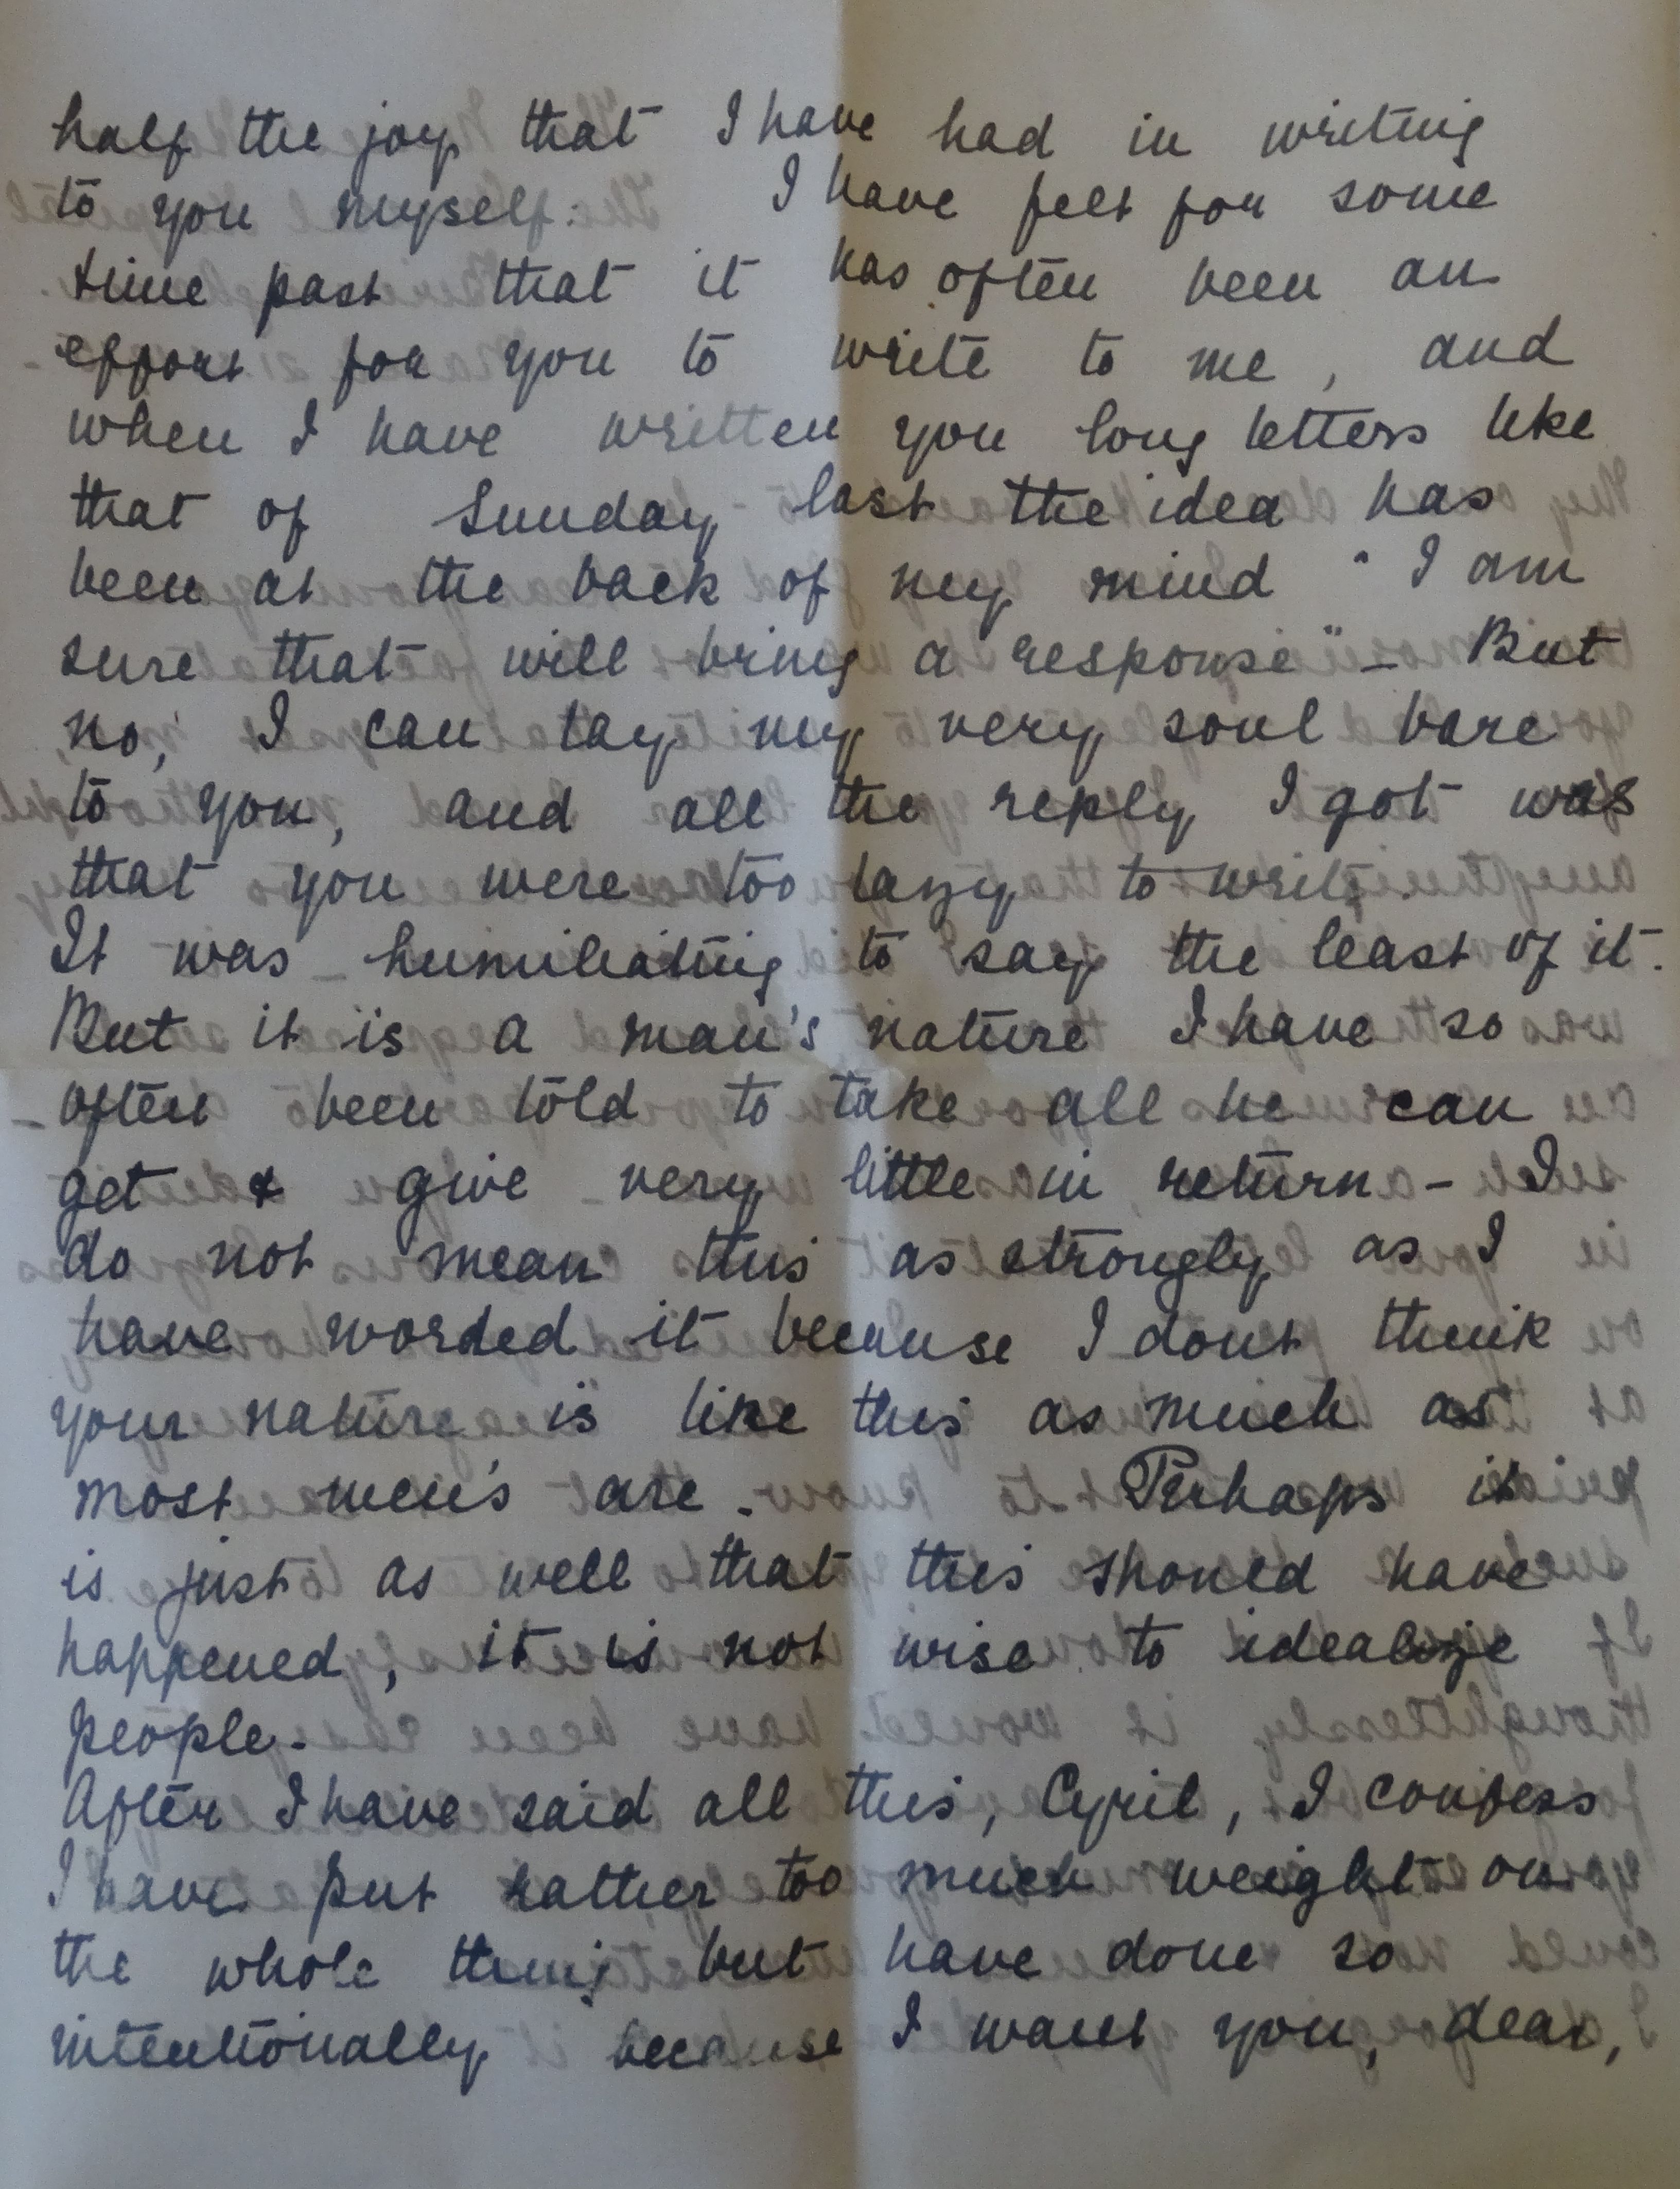 half the joy that I have had in writing
to you myself. I have felt for some
time past that it has often been an
effort for you to write to me, and
when I have written you long letters like
that of Sunday last the idea has
been at the back of my mind "I am
sure that will bring a response" – But
no, I can lay my very soul bare
to you, and all the reply I got was
that you were too lazy to write.
It was humiliating to say the least of it.
But it is a man's nature I have so
often been told to take all he can
get & give very little in return – I
do not mean this as strongly as I
have worded it because I dont think
your nature is like this as much as
most men's are. Perhaps it
is just as well that this should have
happened, it is not wise to idealize
people.
After I have said all this, Cyril, I confess
I have put rather too much weight on
the whole thing but have done so
intentionally because I want you, dear,